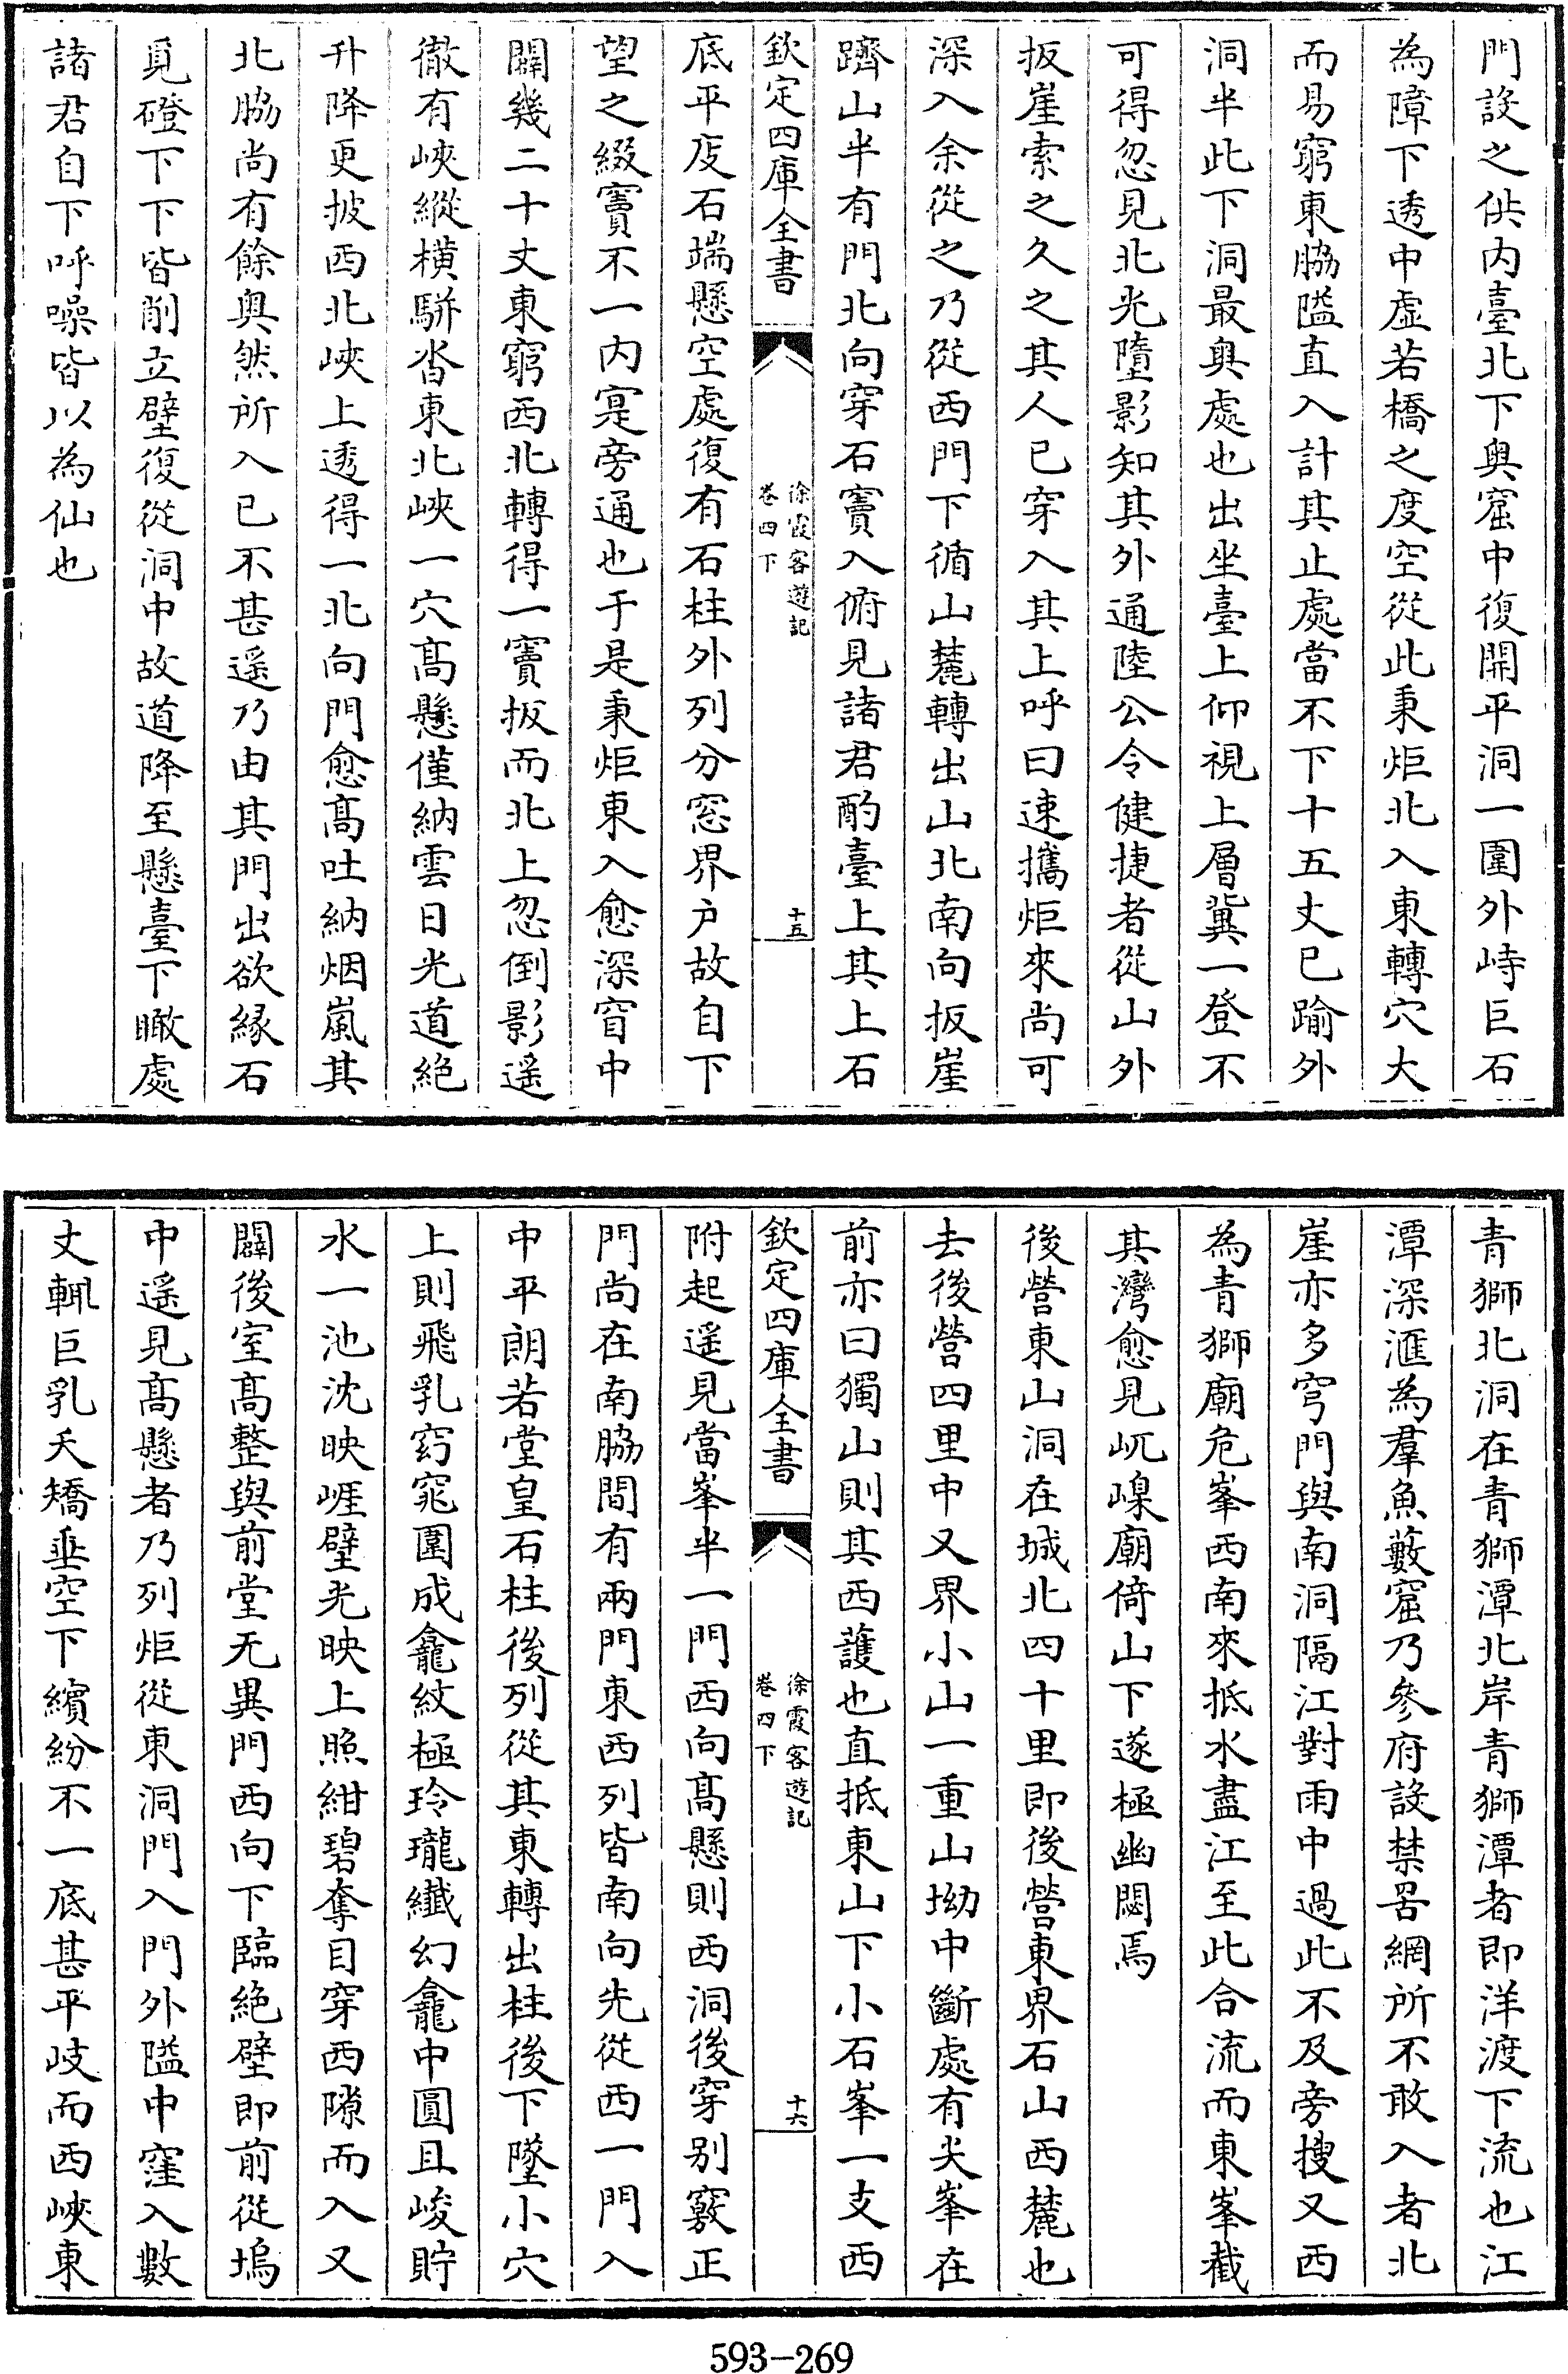 門設之供内臺北下奥窟中復開平洞一圍外峙巨石
為障下透中虚若橋之度空從此秉炬北入東轉穴大
而易窮東脇隘直入計其止處當不下十五丈已踰外
洞半此下洞最奥處也出坐臺上仰視上層冀一登不
可得忽見北光墮影知其外通陸公令健捷者從山外
扳崖索之久之其人已穿入其上呼曰速攜炬來尚可
深入余從之乃從西門下循山麓轉出山北南向扳崖
躋山半有門北向穿石竇入俯見諸君酌臺上其上石
欽定四庫全書
徐霞客遊記
卷四下
十五
底平庋石端懸空處復有石柱外列分窓界户故自下
望之綴竇不一内寔旁通也于是秉炬東入愈深窅中
闢幾二十丈東窮西北轉得一竇扳而北上忽倒影遥
徹有峽縱横駢沓東北峽一穴髙懸僅納雲日光道絶
升降更披西北峽上透得一北向門愈髙吐納烟嵐其
北脇尚有餘奥然所入已不甚遥乃由其門出欲縁石
覓磴下下皆削立壁復從洞中故道降至懸臺下瞰處
諸君自下呼噪皆以為仙也
青獅北洞在青獅潭北岸青獅潭者即洋渡下流也江
潭深滙為羣魚藪窟乃參府設禁罟網所不敢入者北
崖亦多穹門與南洞隔江對雨中過此不及旁搜又西
為青獅廟危峯西南來抵水盡江至此合流而東峯截
其灣愈見屼嵲廟倚山下遂極幽閟焉
後營東山洞在城北四十里即後營東界石山西麓也
去後營四里中又界小山一重山坳中斷處有尖峯在
前亦曰獨山則其西護也直抵東山下小石峯一支西
欽定四庫全書
徐霞客遊記
卷四下
十六
附起遥見當峯半一門西向髙懸則西洞後穿别竅正
門尚在南脇間有兩門東西列皆南向先從西一門入
中平朗若堂皇石柱後列從其東轉出柱後下墜小穴
上則飛乳窈窕圍成龕紋極玲瓏纖幻龕中圓且峻貯
水一池沈映崕壁光映上照紺碧奪目穿西隙而入又
闢後室髙整與前堂无異門西向下臨絶壁即前從塢
中遥見髙懸者乃列炬從東洞門入門外隘中窪入數
丈輒巨乳夭矯垂空下繽紛不一底甚平岐而西峽東
593-269